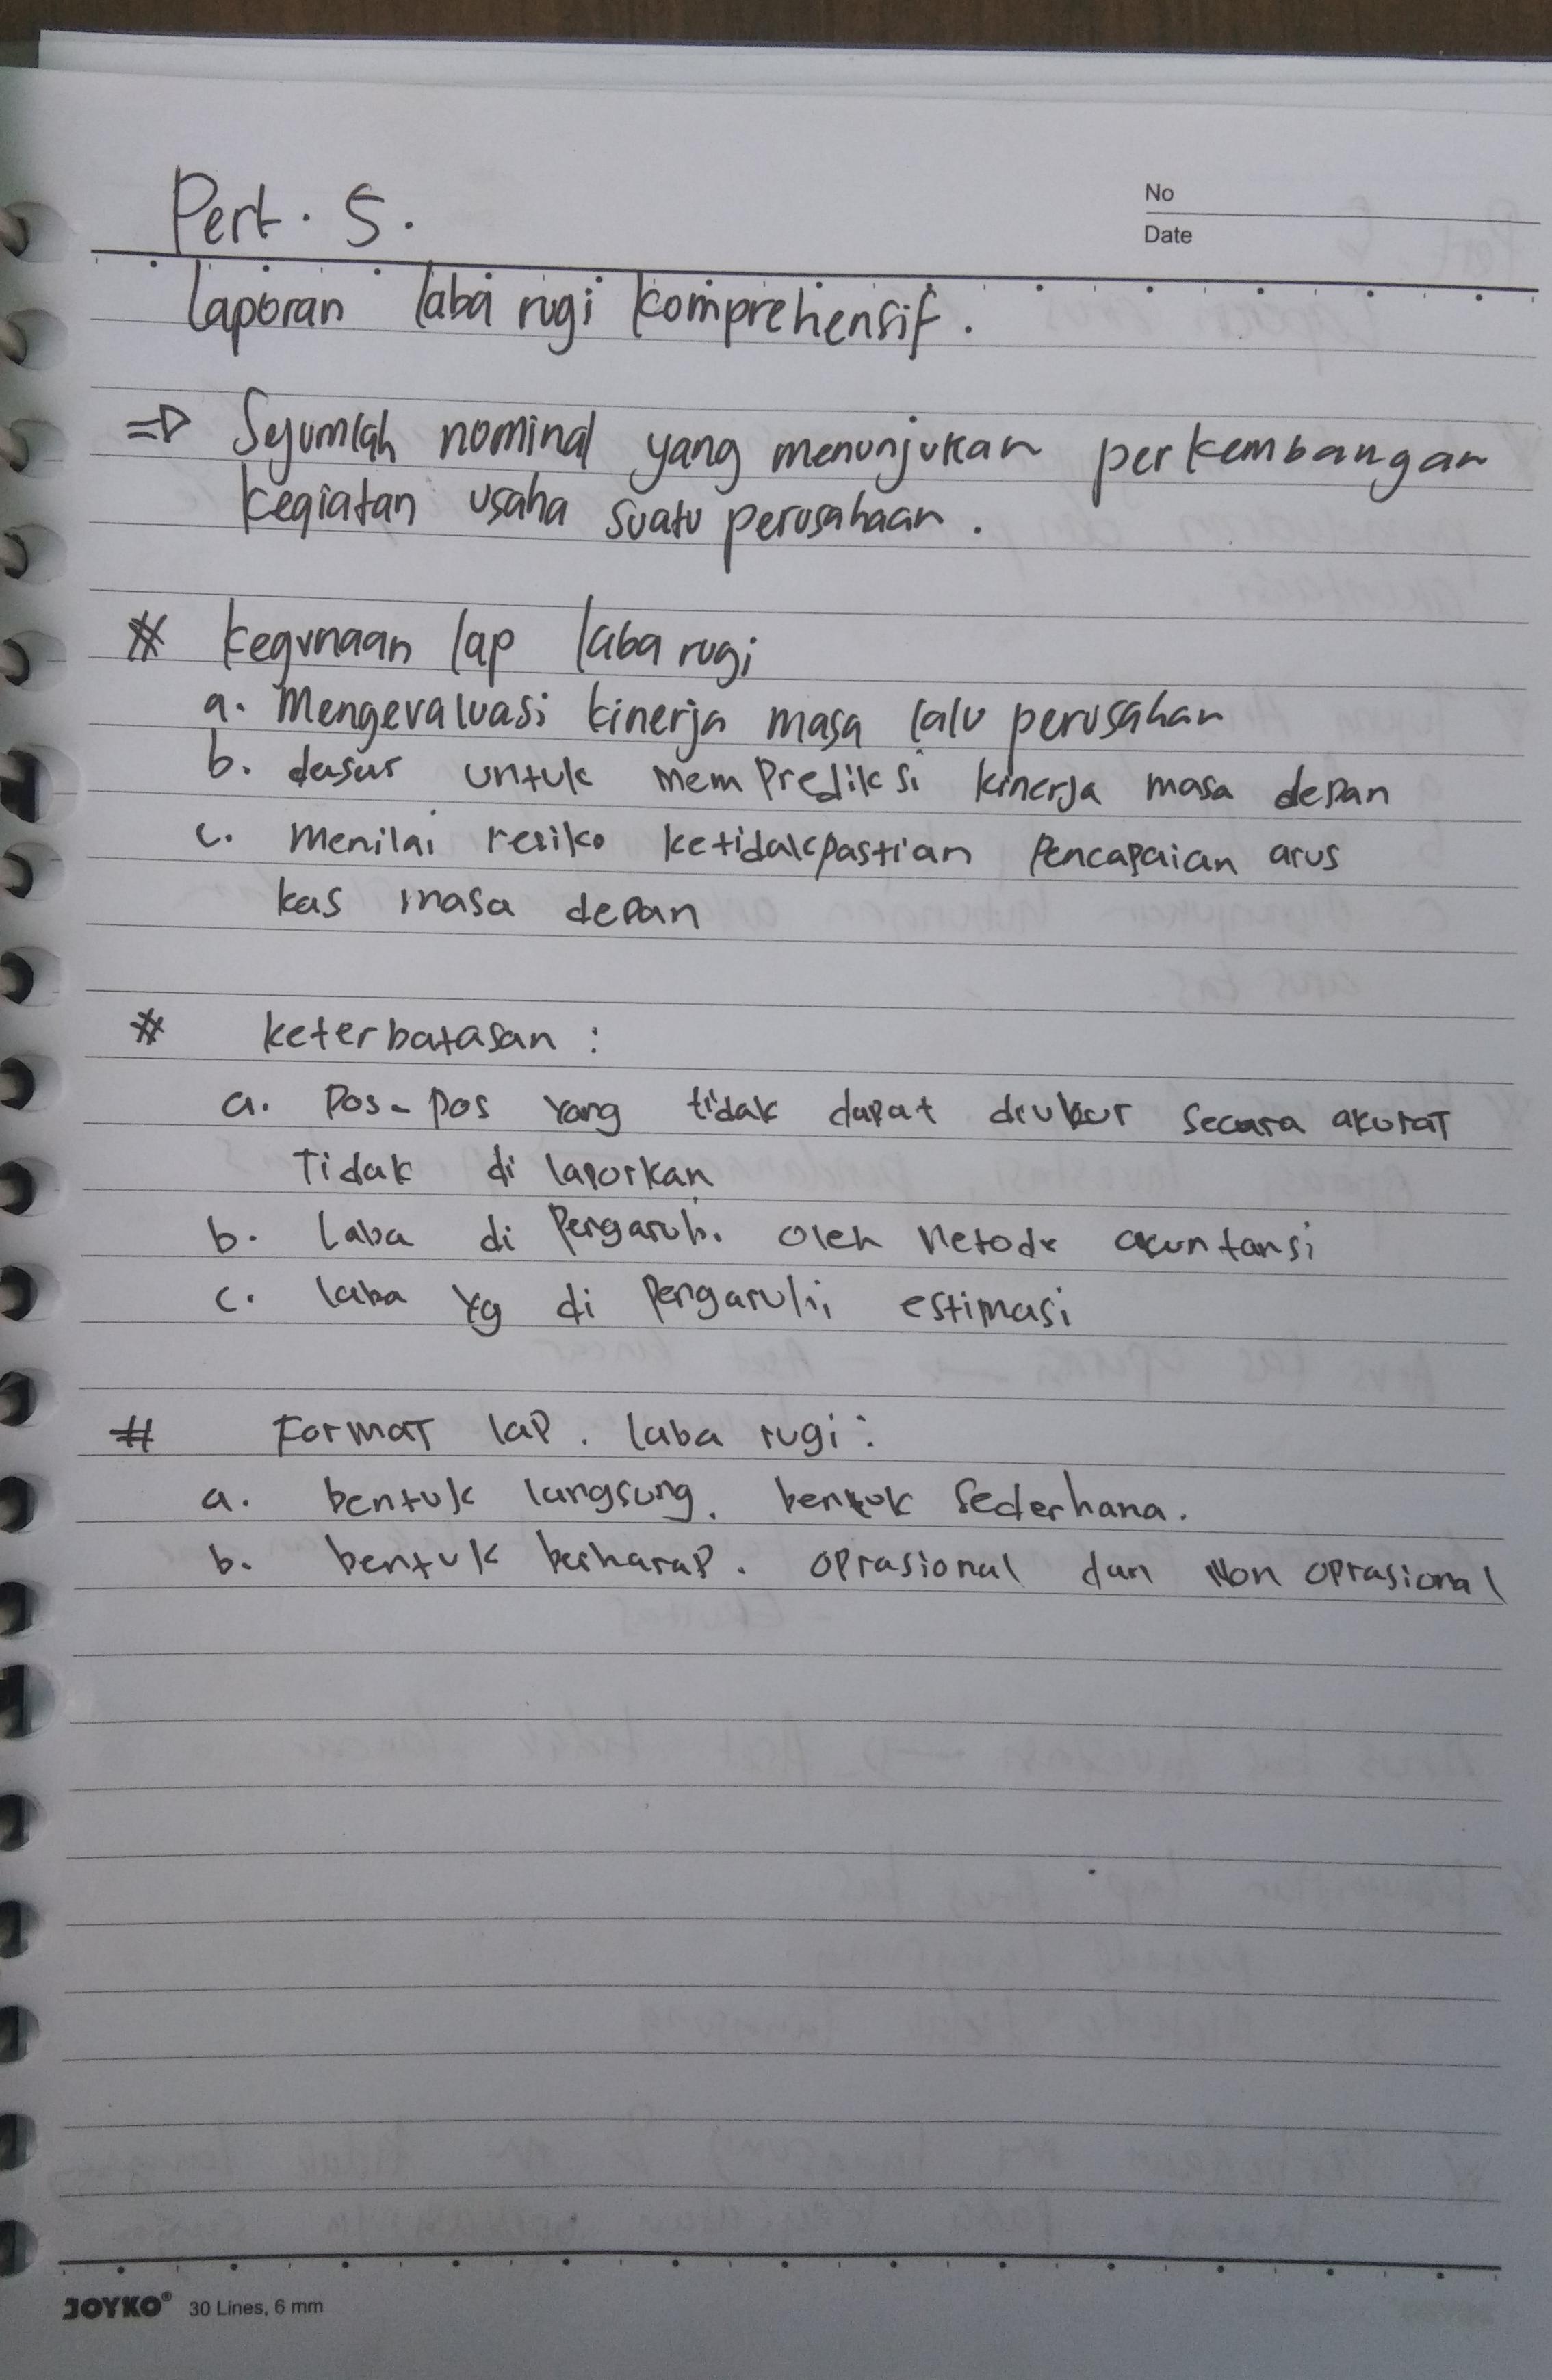 Pert. 5.
No
Date
Laporan laba rugi komprehensif.
=> Sejumlah nominal yang menunjukan perkembangan
kegiatan usaha suatu perusahaan.
# kegunaan lap laba rugi
a. Mengevaluasi kinerja masa lalu perusahan
b. dasar untuk memprediksi kinerja masa depan
c. Menilai resiko ketidakpastian Pencapaian arus
kas masa depan
# keterbatasan :
a. Pos-pos yang tidak dapat diukur secara akurat
Tidak di laporkan
b. Laba di Pengaruhi oleh Metode akuntansi
c. laba yg di Pengaruhi estimasi
# Format lap. laba rugi :
a. bentuk langsung. bentuk sederhana.
b. bentuk berharap. oprasional dan Non oprasional
JOYKO® 30 Lines, 6 mm